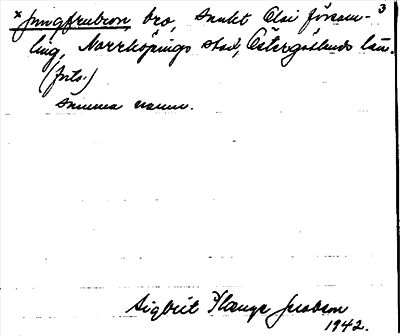 x Jungfrubron bro, Sankt Olai församling, 3
ling, Norrköpings stad, Östergötlands län.
(forts.)
samma namn.
Sigbrit Plænge Jacobson
1942.